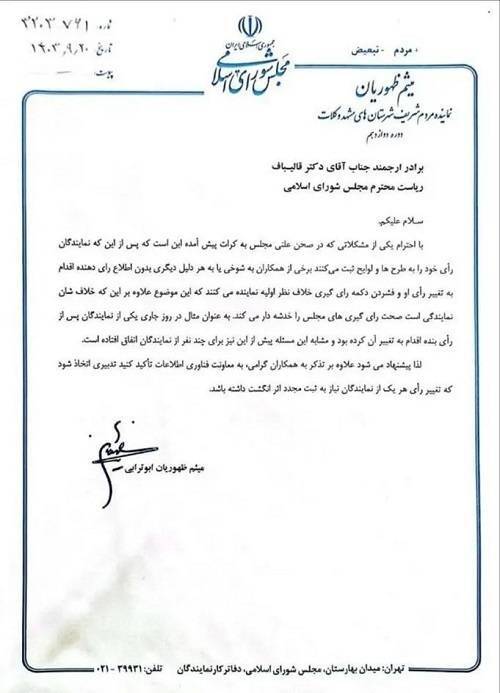 شماره: ۳۲۰۳۷۶۱
تاریخ: ۱۴۰۳,۹,۲۰
پیوست: —
جمهوری اسلامی ایران
مجلس شورای اسلامی
. مردم - تبعیض
میثم ظهوریان
نماینده مردم شریف شهرستان های مشهد و کلات
دوره دوازدهم
برادر ارجمند جناب آقای دکتر قالیباف
ریاست محترم مجلس شورای اسلامی
سلام علیکم.
با احترام یکی از مشکلاتی که در صحن علنی مجلس به کرات پیش آمده این است که پس از این که نمایندگان
رأی خود را به طرح ها و لوایح ثبت می‌کنند برخی از همکاران به شوخی یا به هر دلیل دیگری بدون اطلاع رای دهنده اقدام
به تغییر رأی او و فشردن دکمه رای گیری خلاف نظر اولیه نماینده می کنند که این موضوع علاوه بر این که خلاف شان
نمایندگی است صحت رای گیری های مجلس را خدشه دار می کند. به عنوان مثال در روز جاری یکی از نمایندگان پس از
رأی بنده اقدام به تغییر آن کرده بود و مشابه این مسئله پیش از این نیز برای چند نفر از نمایندگان اتفاق افتاده است.
لذا پیشنهاد می شود علاوه بر تذکر به همکاران گرامی، به معاونت فناوری اطلاعات تأکید کنید تدبیری اتخاذ شود
که تغییر رأی هر یک از نمایندگان نیاز به ثبت مجدد اثر انگشت داشته باشد.
میثم ظهوریان ابوترابی
تهران: میدان بهارستان، مجلس شورای اسلامی، دفاتر کار نمایندگان تلفن: ۳۹۹۳۱ - ۰۲۱